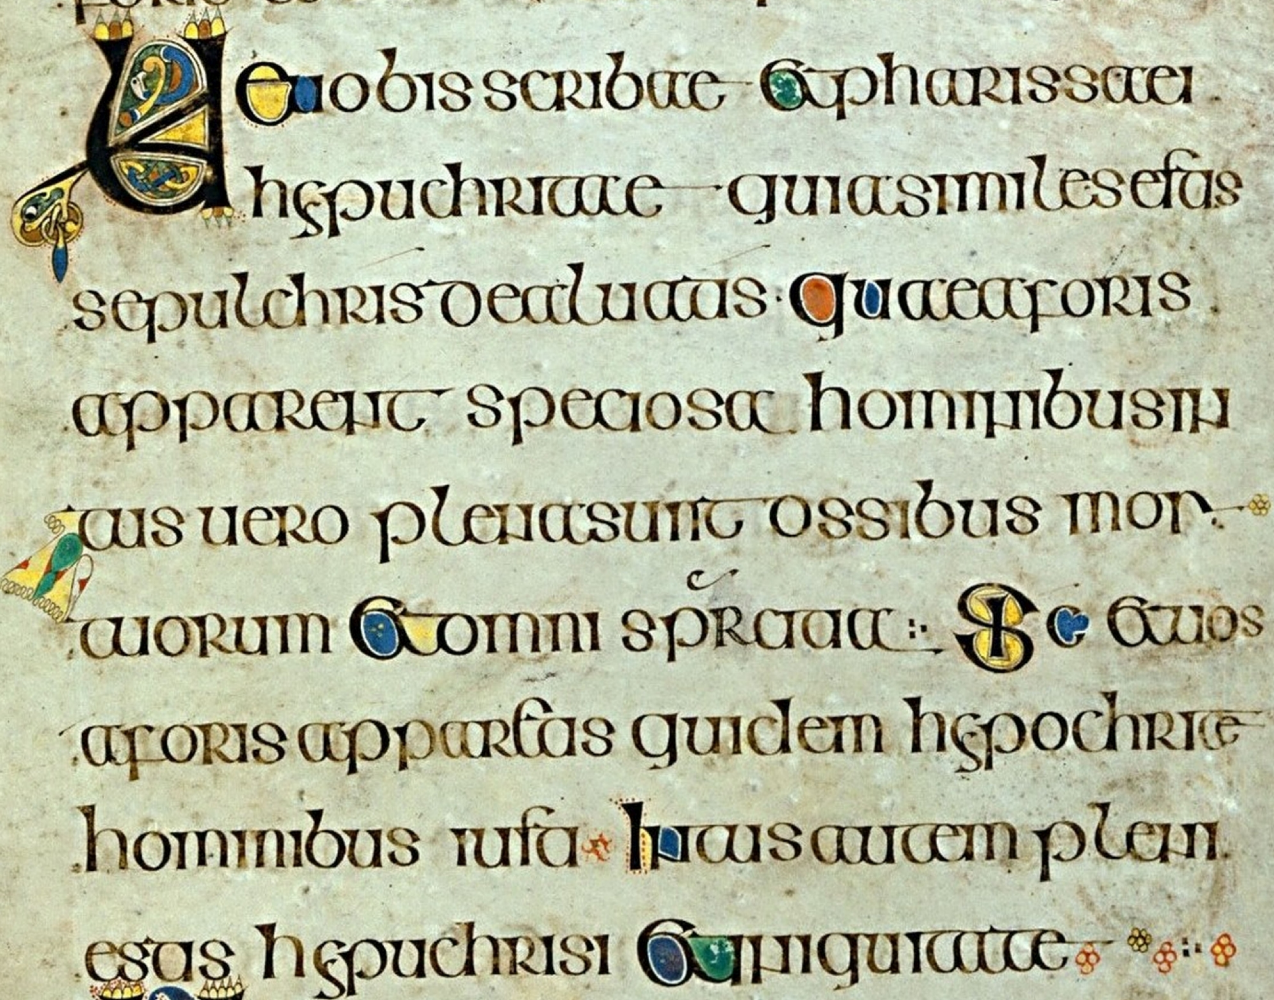 Uae uobis scribae et pharissaei
hypuchritae quia similes estis
sepulchris dealuatis quae a foris
apparent speciosa hominibus in
tus uero plena sunt ossibus mor
tuorum et omni spurcitia Sic et uos
a foris apparetis quidem hypochrite
hominibus iusti Intus autem pleni
estis hypuchrisi et iniquitate